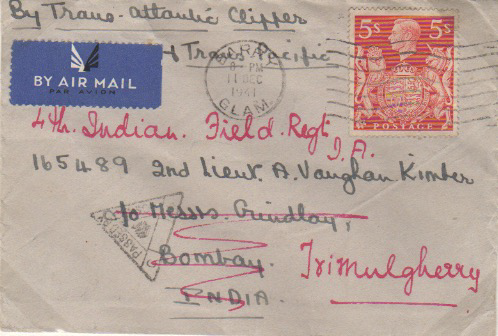 By Trans-Atlantic Clipper
& Trans Pacific
BY AIR MAIL
PAR AVION
BARRY
8 - PM
11 DEC
1941
GLAM.
5s 5s
POSTAGE
4th. Indian. Field. Regt
I.A.
165489 2nd Lieut. A. Vaughan Kimber
c/o Messrs Grindlay,
PASSED
Bombay. Trimulgherry
INDIA.